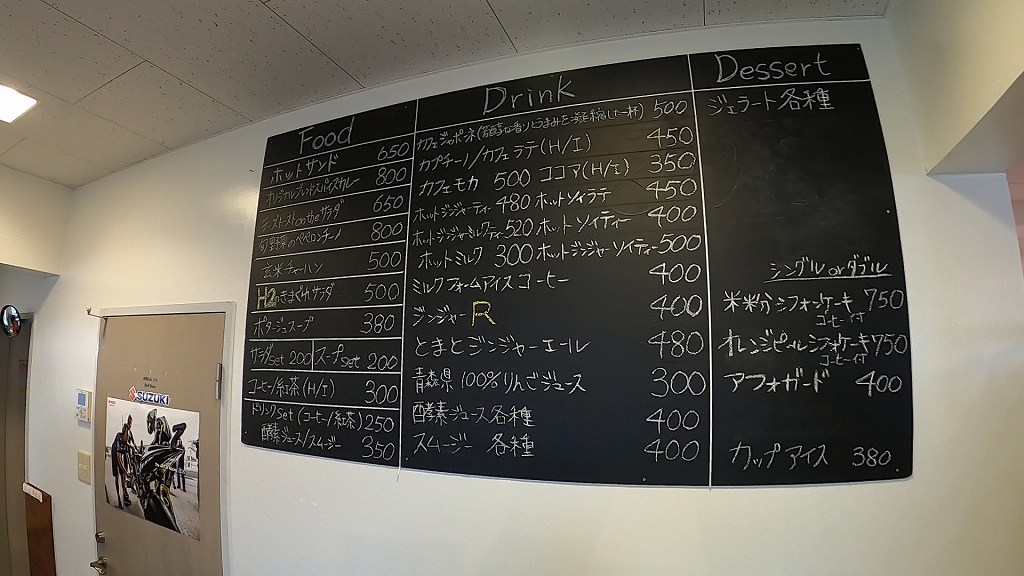 Food
ホットサンド 650
オリジナルブレンドスパイスカレー 800
チーズトースト on the サラダ 650
旬野菜のペペロンチーノ 800
玄米チャーハン 500
H2のきまぐれサラダ 500
ポタージュスープ 380
サラダset 200 スープset 200
コーヒー/紅茶(H/I) 300
ドリンクset(コーヒー/紅茶) 250
酵素ジュース/スムージー 350
Drink
カフェジャポーネ 500
カプチーノ/カフェラテ(H/I) 450
カフェモカ 500 ココア(H/I) 350
ホットジンジャーティー 480 ホットソイラテ 450
ホットジンジャーミルクティー 520 ホットソイティー 400
ホットミルク 300 ホットジンジャーソイティー 500
ミルクフォームアイスコーヒー 400
ジンジャーR 400
とまとジンジャーエール 480
青森県100%りんごジュース 300
酵素ジュース各種 400
スムージー 各種 400
Dessert
ジェラート各種
シングル or ダブル
米粉シフォンケーキ 750
コーヒー付
オレンジピールシフォンケーキ 750
コーヒー付
アフォガード 400
カップアイス 380
SUZUKI